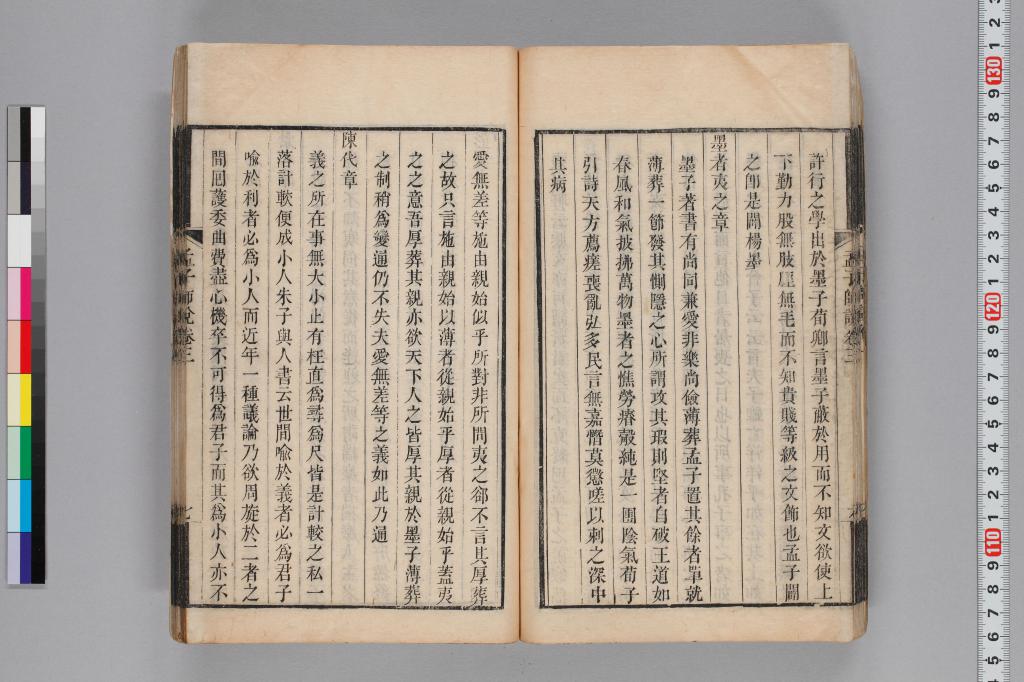 許行之學出於墨子荀卿言墨子蔽於用而不知文欲使上
下勤力股無胈脛無毛而不知貴賤等級之文飾也孟子闢
之卽是闢楊墨
墨者夷之章
墨子著書有尚同兼愛非樂尚儉薄葬孟子置其餘者單就
薄葬一節發其惻隱之心所謂攻其瑕則堅者自破王道如
春風和氣披拂萬物墨者之憔勞瘠觳純是一團陰氣荀子
引詩天方薦瘥喪亂弘多民言無嘉憯莫懲嗟以刺之深中
其病
愛無差等施由親始似乎所對非所問夷之郤不言其厚葬
之故只言施由親始以薄者從親始乎厚者從親始乎蓋夷
之之意吾厚葬其親亦欲天下人之皆厚其親於墨子薄葬
之制稍爲變通仍不失夫愛無差等之義如此乃通
陳代章
義之所在事無大小止有枉直爲尋爲尺皆是計較之私一
落計較便成小人朱子與人書云世間喻於義者必爲君子
喻於利者必爲小人而近年一種議論乃欲周旋於二者之
間囘護委曲費盡心機卒不可得爲君子而其爲小人亦不
孟子師說卷三
七
130
120
110